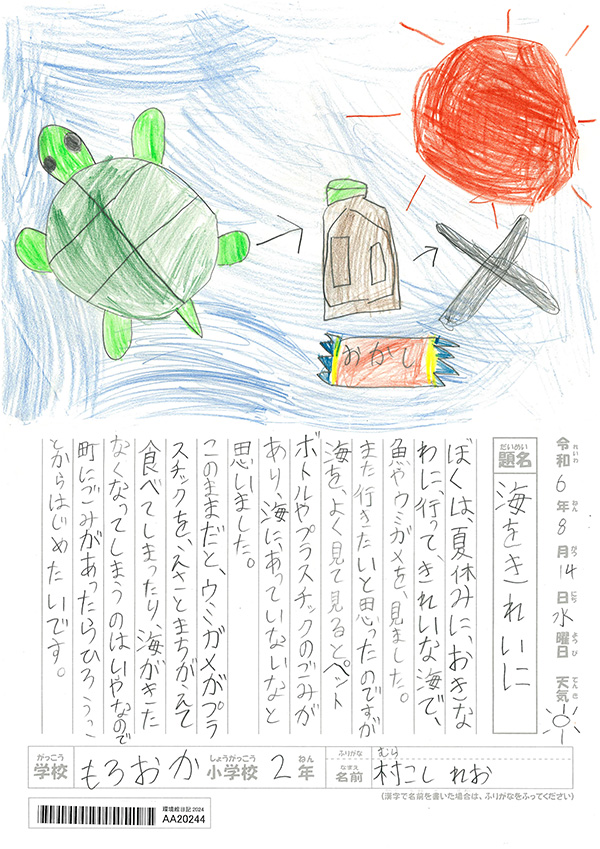 おかし
令和6年8月14日水曜日 天気
れいわ ねん がつ にち ようび てんき
だいめい
題名
海をきれいに
ぼくは、夏休みに、おきな
わに、行って、きれいな海で、
魚や、ウミガメを、見ました。
また行きたいと思ったのですが
海を、よく見て見るとペット
ボトルやプラスチックのごみが
あり、海に、あっていないなと
思いました。
このままだと、ウミガメがプラ
スチックを、えさとまちがえて
食べてしまったり、海がきた
なくなってしまうのはいやなので
町にごみがあったらひろうこ
とからはじめたいです。
がっこう
学校
もろおか
しょうがっこう
小学校
2
ねん
年
ふりがな
むら
なまえ
名前
村こし れお
(漢字で名前を書いた場合は、ふりがなをふってください)
環境絵日記2024
AA20244